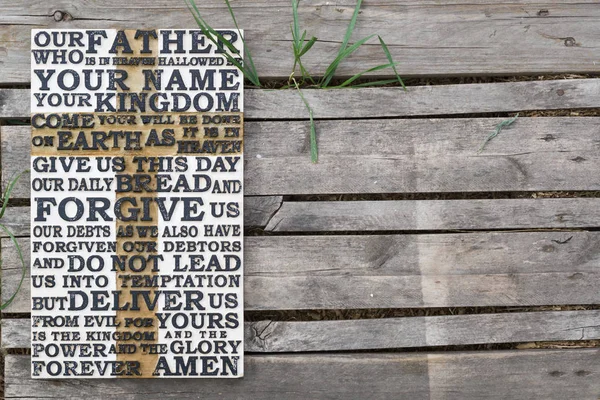 OUR FATHER
WHO IS IN HEAVEN HALLOWED BE
YOUR NAME
YOUR KINGDOM
COME YOUR WILL BE DONE
ON EARTH AS IT IS IN HEAVEN
GIVE US THIS DAY
OUR DAILY BREAD AND
FORGIVE US
OUR DEBTS AS WE ALSO HAVE
FORGIVEN OUR DEBTORS
AND DO NOT LEAD
US INTO TEMPTATION
BUT DELIVER US
FROM EVIL FOR YOURS
IS THE KINGDOM AND THE
POWER AND THE GLORY
FOREVER AMEN